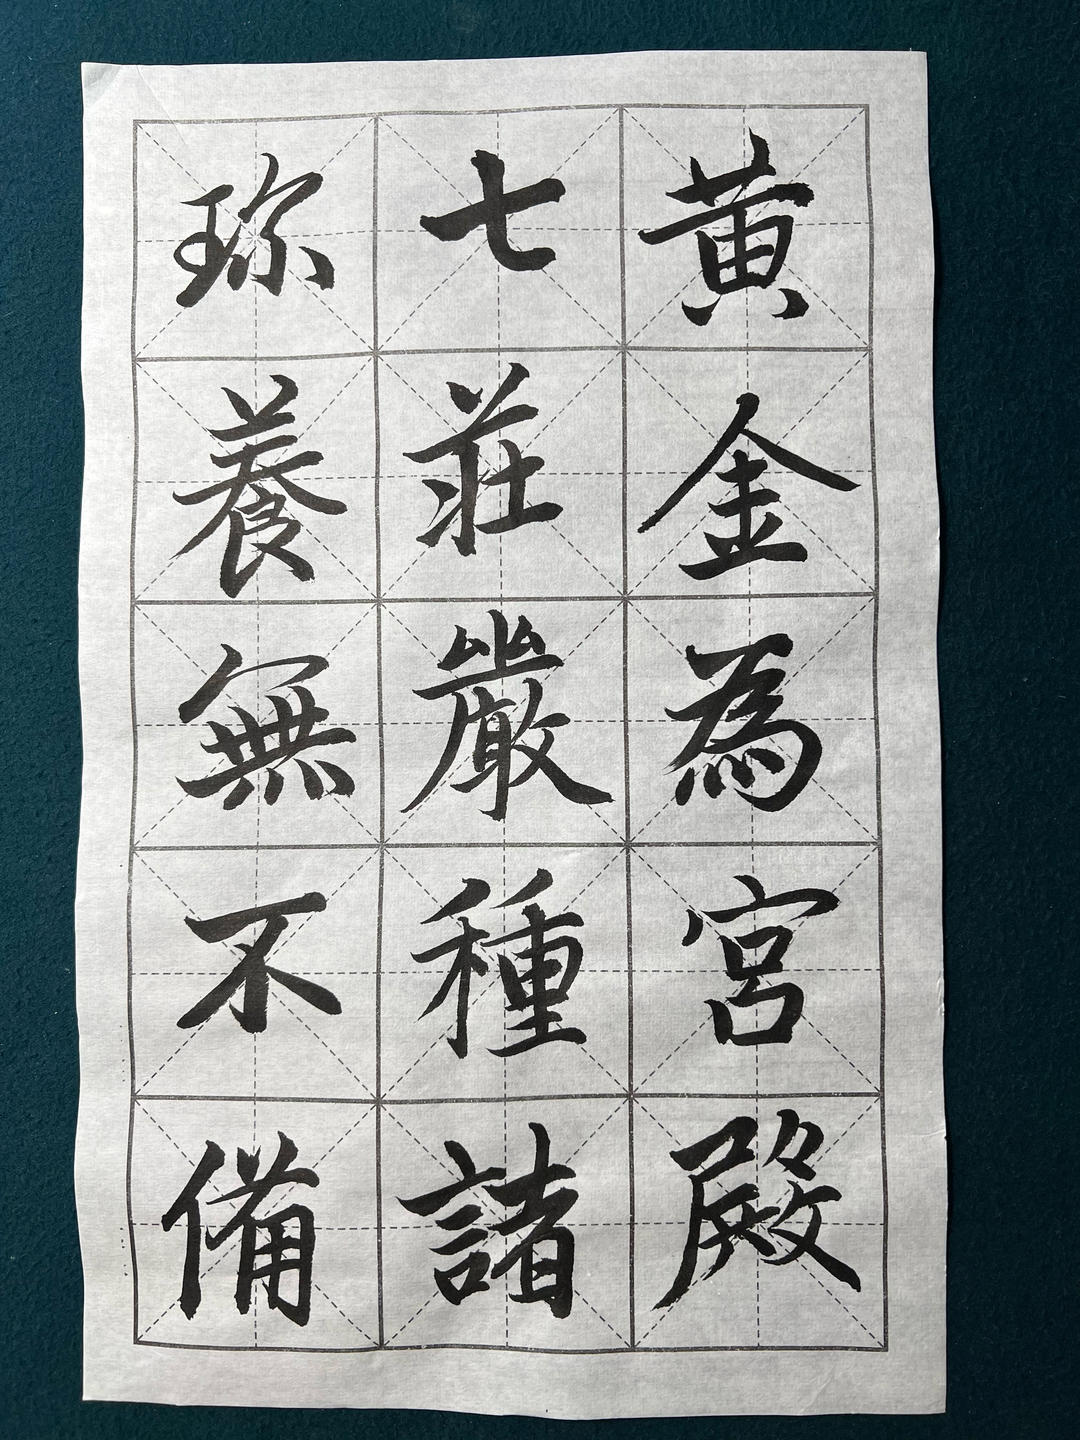 黄金為宮殿
七莊嚴種諸
珎養無不備